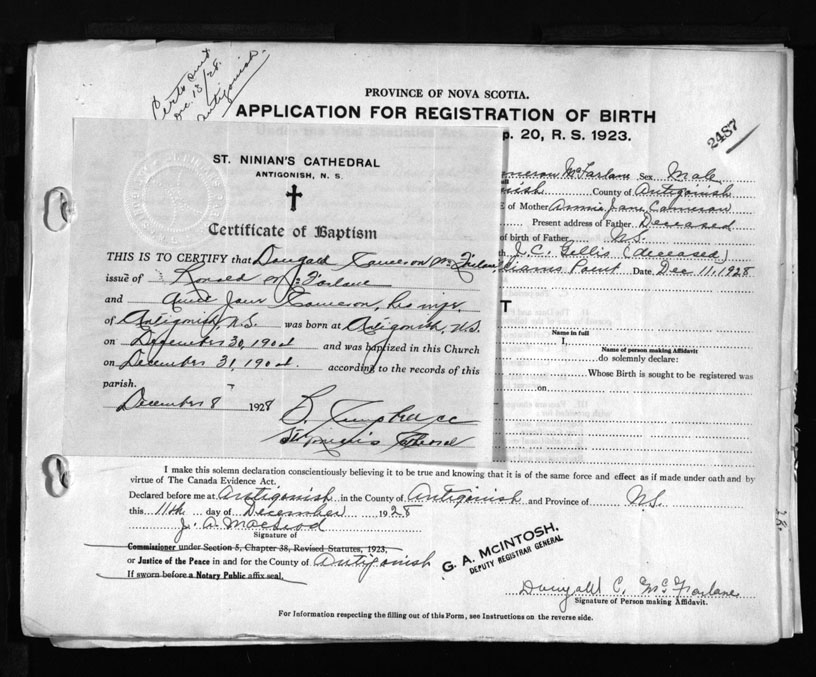 Antigonish.
PROVINCE OF NOVA SCOTIA.
APPLICATION FOR REGISTRATION OF BIRTH
p. 20, R. S. 1923.
2487
meron McFarlane Sex Male
nish County of Antigonish
of Mother Annie Jane Cameron
Present address of Father Deceased
of birth of Father N.S.
J. C. Gillis (deceased)
Point Date, Dec 11, 1928
T
Name in full
I,
Name of person making Affidavit
do solemnly declare:
Whose Birth is sought to be registered was
on
ST. NINIAN'S CATHEDRAL
ANTIGONISH, N. S.
Certificate of Baptism
THIS IS TO CERTIFY that Dougald Cameron McFarlane
issue of Ronald McFarlane
and Annie Jane Cameron, his
of Antigonish, N.S. was born at Antigonish, N.S.
on December 30, and was baptized in this Church
on December 31, according to the records of this
parish.
December 8 1928
I make this solemn declaration conscientiously believing it to be true and knowing that it is of the same force and effect as if made under oath and by
virtue of The Canada Evidence Act.
Declared before me at Antigonish in the County of Antigonish and Province of N.S.
this 11th day of December 1928
J. A. MacLeod
Signature of
Commissioner under Section 5, Chapter 38, Revised Statutes, 1923,
or Justice of the Peace in and for the County of Antigonish
If sworn before a Notary Public affix seal.
G. A. McINTOSH,
DEPUTY REGISTRAR GENERAL
Dougald C. McFarlane
Signature of Person making Affidavit.
For Information respecting the filling out of this Form, see Instructions on the reverse side.